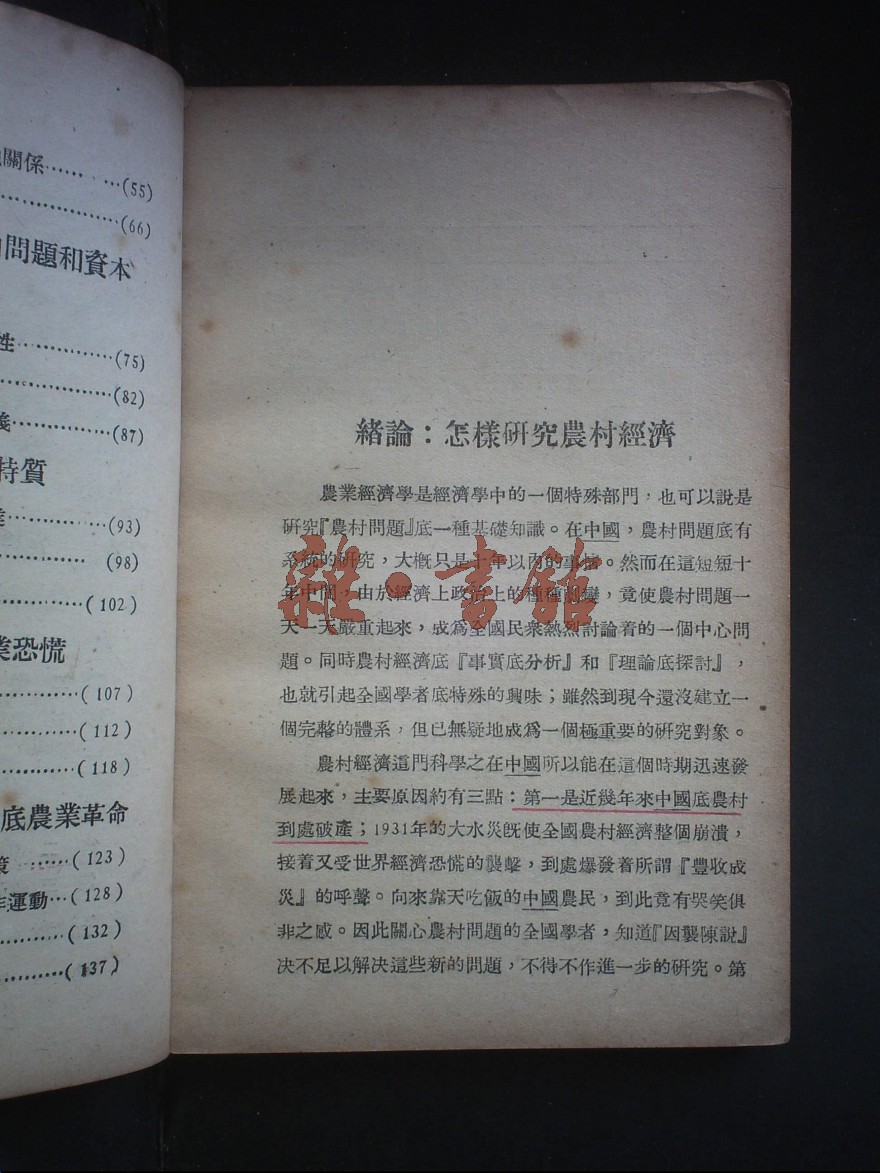 關係…………(55)
…………(66)
問題和資本
性…………(75)
…………(82)
…………(87)
特質
…………(93)
(98)
…………(102)
業恐慌
…………(107)
…………(112)
…………(118)
底農業革命
策…………(123)
運動…(128)
…………(132)
…………(137)
緒論：怎樣研究農村經濟
農業經濟學是經濟學中的一個特殊部門，也可以說是
研究『農村問題』底一種基礎知識。在中國，農村問題底有
系統的研究，大概只是十年以內的事情。然而在這短短十
年中間，由於經濟上政治上的種種劇變，竟使農村問題一
天一天嚴重起來，成爲全國民衆熱烈討論着的一個中心問
題。同時農村經濟底『事實底分析』和『理論底探討』，
也就引起全國學者底特殊的興味；雖然到現今還沒建立一
個完整的體系，但已無疑地成爲一個極重要的研究對象。
農村經濟這門科學之在中國所以能在這個時期迅速發
展起來，主要原因約有三點：第一是近幾年來中國底農村
到處破產；1931年的大水災旣使全國農村經濟整個崩潰，
接着又受世界經濟恐慌的襲擊，到處爆發着所謂『豐收成
災』的呼聲。向來靠天吃飯的中國農民，到此竟有哭笑俱
非之感。因此關心農村問題的全國學者，知道『因襲陳說』
決不足以解決這些新的問題，不得不作進一步的研究。第
雜·書館